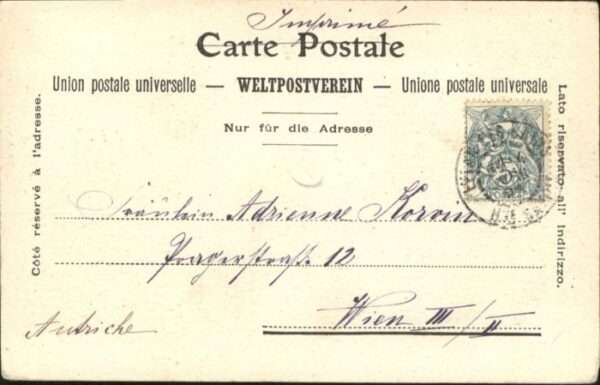 Imprimé
Carte Postale
Union postale universelle — WELTPOSTVEREIN — Unione postale universale
Nur für die Adresse
Côté réservé à l'adresse.
Lato riservato all' Indirizzo.
Fräulein Adrienne Korvin
Pragerstraße 12
Wien III/II
Autriche